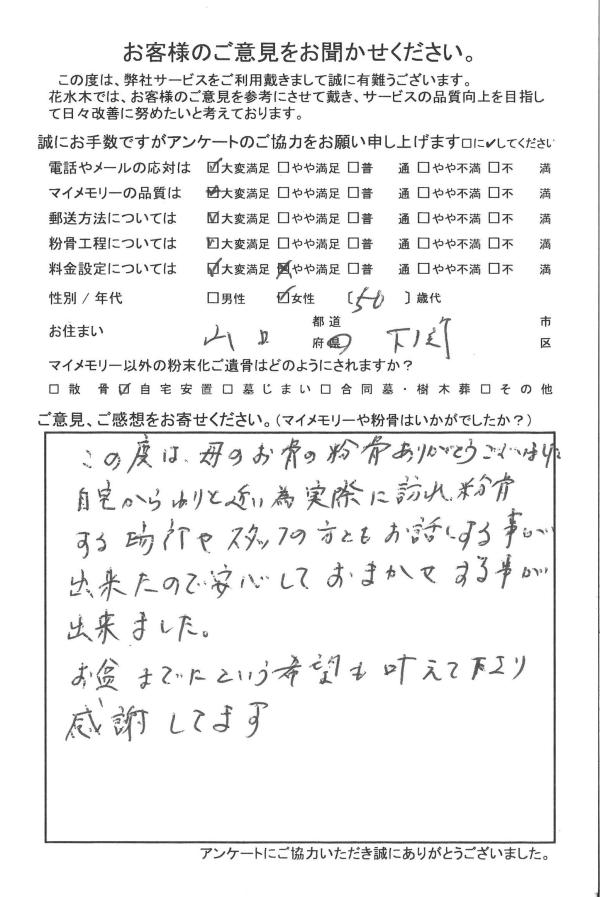 お客様のご意見をお聞かせください。
この度は、弊社サービスをご利用戴きまして誠に有難うございます。
花水木では、お客様のご意見を参考にさせて戴き、サービスの品質向上を目指し
て日々改善に努めたいと考えております。
誠にお手数ですがアンケートのご協力をお願い申し上げます□に✔してください
電話やメールの応対は ☑大変満足 □やや満足 □普 通 □やや不満 □不 満
マイメモリーの品質は ☑大変満足 □やや満足 □普 通 □やや不満 □不 満
郵送方法については ☑大変満足 □やや満足 □普 通 □やや不満 □不 満
粉骨工程については ☑大変満足 □やや満足 □普 通 □やや不満 □不 満
料金設定については ☑大変満足 ☒やや満足 □普 通 □やや不満 □不 満
性別 / 年代 □男性 ☑女性 〔50 〕歳代
お住まい 山口 都道府県 下関 市区
マイメモリー以外の粉末化ご遺骨はどのようにされますか?
□散 骨 ☑自宅安置 □墓じまい □合同墓・樹木葬 □その他
ご意見、ご感想をお寄せください。(マイメモリーや粉骨はいかがでしたか?)
この度は、母のお骨の粉骨ありがとうございました
自宅からわりと近い為実際に訪れ、粉骨
する場所やスタッフの方ともお話しする事が
出来たので安心しておまかせする事が
出来ました。
お盆までにという希望も叶えて下さり
感謝してます
アンケートにご協力いただき誠にありがとうございました。